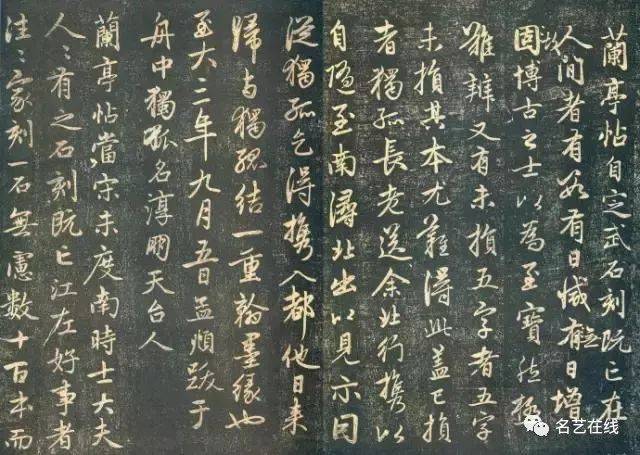 蘭亭帖自定武石刻既亡在
人間者有數有日減無日增
故博古之士以為至寶然極
難辨又有未損五字者五字
未損其本尤難得此蓋已損
者獨孤長老送余北行攜以
自隨至南潯北出以見示因
從獨孤乞得攜入都他日来
歸与獨孤結一重翰墨緣也
至大三年九月五日孟頫跋于
舟中獨孤名淳朋天台人
蘭亭帖當宋未度南時士大夫
人〻有之石刻既亡江左好事者
往〻家刻一石無慮數十百本而
名艺在线